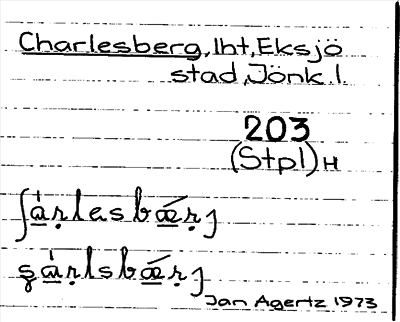 Charlesberg, lht, Eksjö
stad, Jönk. l.
203
(Stpl) H
ʃà̱ṛlasbǽ̱ṛȷ
ʂà̱ṛlsbǽ̱ṛȷ
Jan Agertz 1973